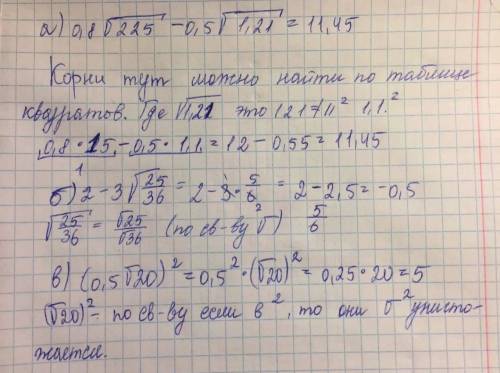 а) 0,8√225 - 0,5√1,21 = 11,45
Корни тут можно найти по таблице
квадратов. Где √1,21 это 121=11² 1,1.²
0,8 · 15 - 0,5 · 1,1 = 12 - 0,55 = 11,45
б) 2 - 3√25/36 = 2 - 3 · 5/6 = 2 - 2,5 = -0,5
√25/36 = √25/√36 (по св-ву √) 5/6
в) (0,5√20)² = 0,5² · (√20)² = 0,25 · 20 = 5
(√20)² - по св-ву если в ², то они √ ² уничто-
жается.